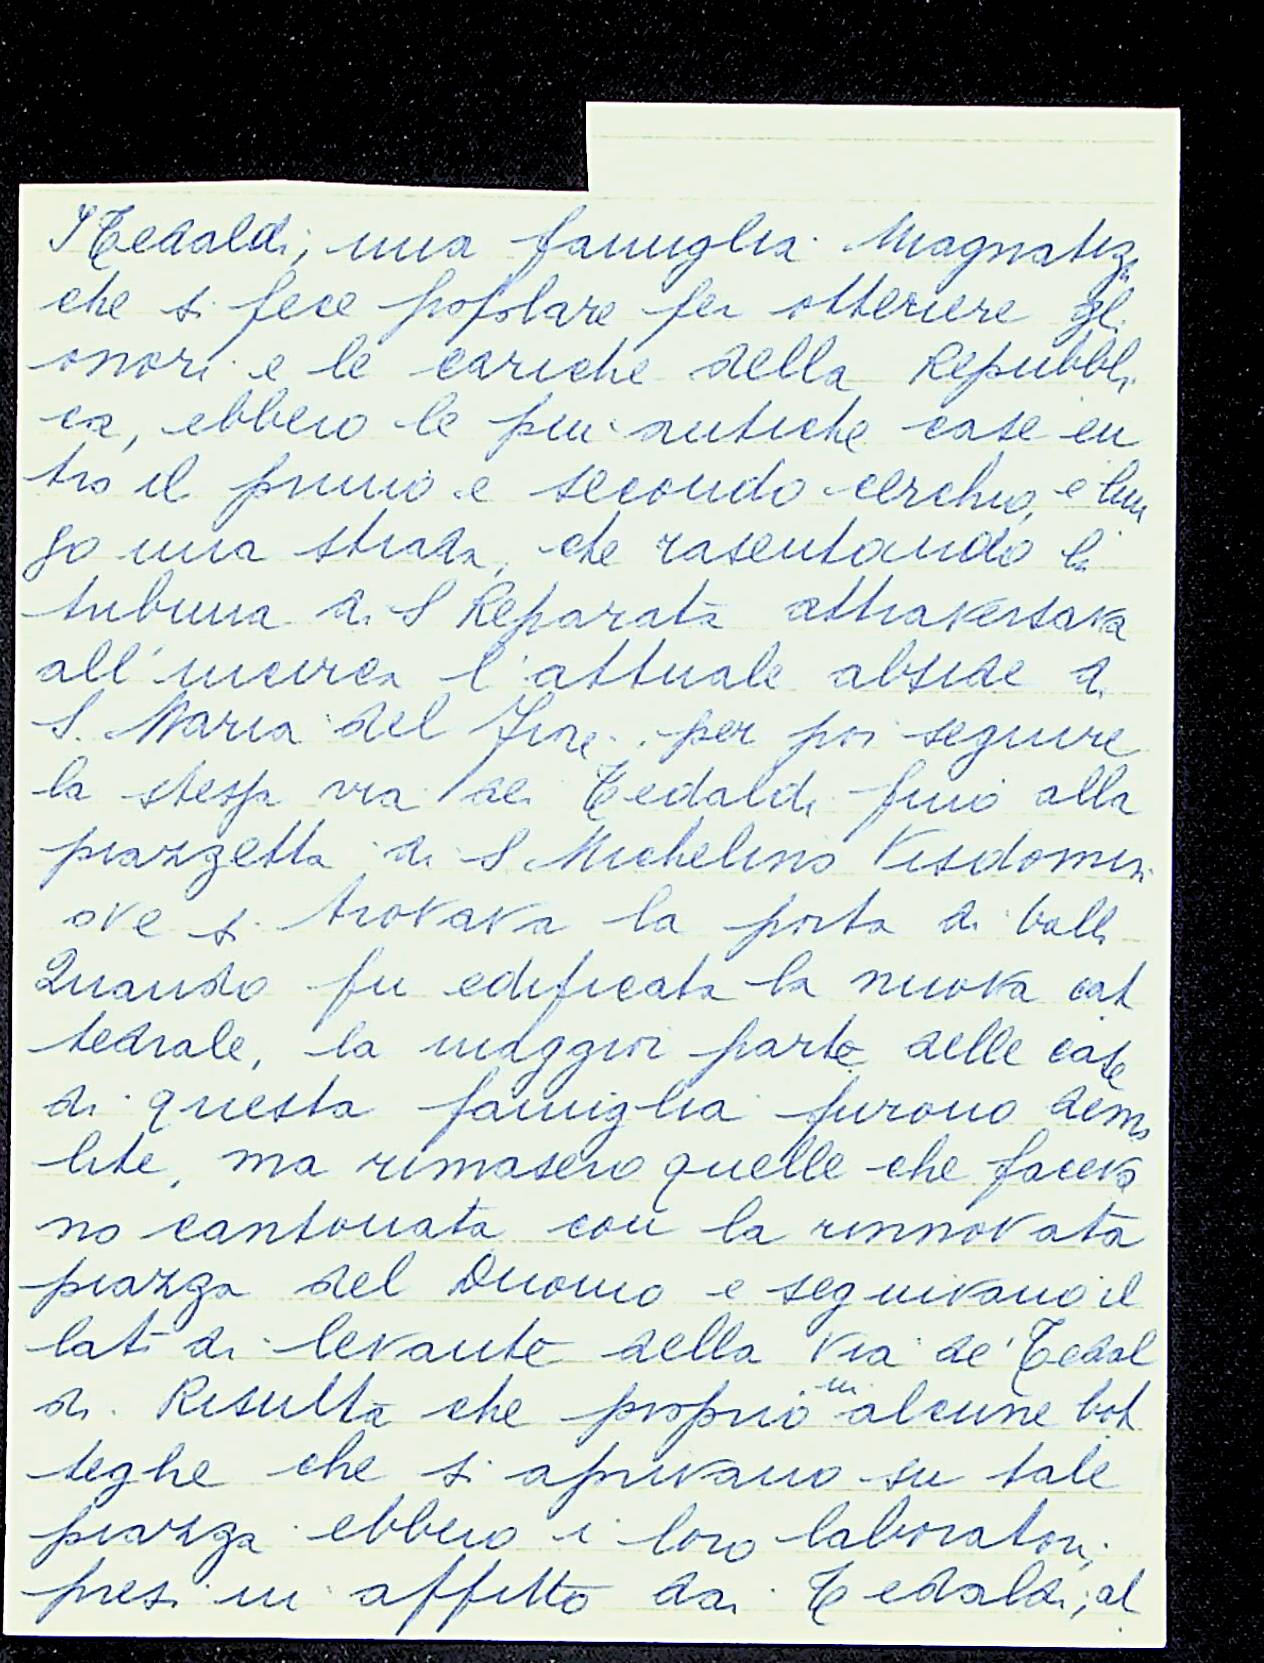 I Tedaldi, una famiglia Magnatizi
che si fece popolare per ottenere gli
onori e le cariche della Repubbli
ca, ebbero le piu antiche case en
tro il primo e secondo cerchio, e lun
go una strada, che rasentando la
tribuna di S Reparata attraversava
all'incirca l'attuale abside di
S. Maria del Fiore. per poi seguire
la stessa via dei Tedaldi fino alla
piazzetta di S Michelino Visdomini
ove si trovava la porta di balli
Quando fu edificata la nuova cat
tedrale, la maggior parte delle case
di questa famiglia furono demo
lite, ma rimasero quelle che faceva
no cantonata con la rinnovata
piazza del Duomo e seguivano il
lato di levante della via de' Tedal
di. Risulta che proprio in alcune bot
teghe che si aprivano su tale
piazza ebbero i loro laboratori,
presi in affitto dai Tedaldi, al